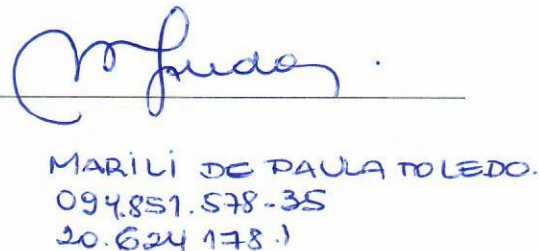 MARILI DE PAULA TOLEDO.
094.851.578-35
20.624 178.1